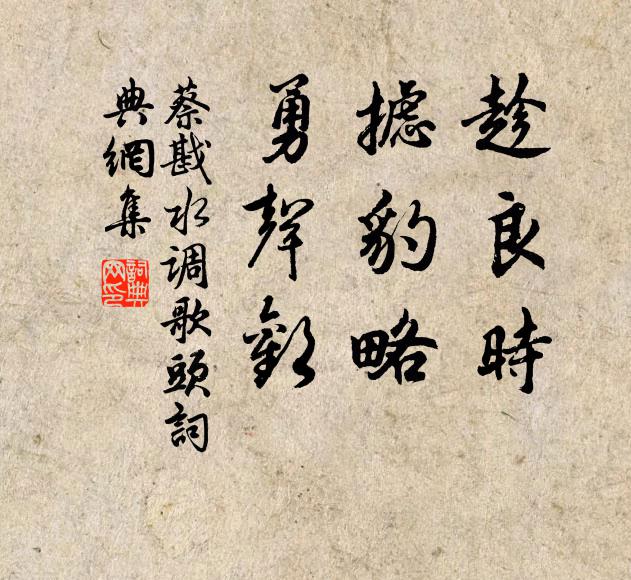 趁良時
攄豹略
勇聲歡
蔡戡水調歌頭詞
典網集
詞典
网印